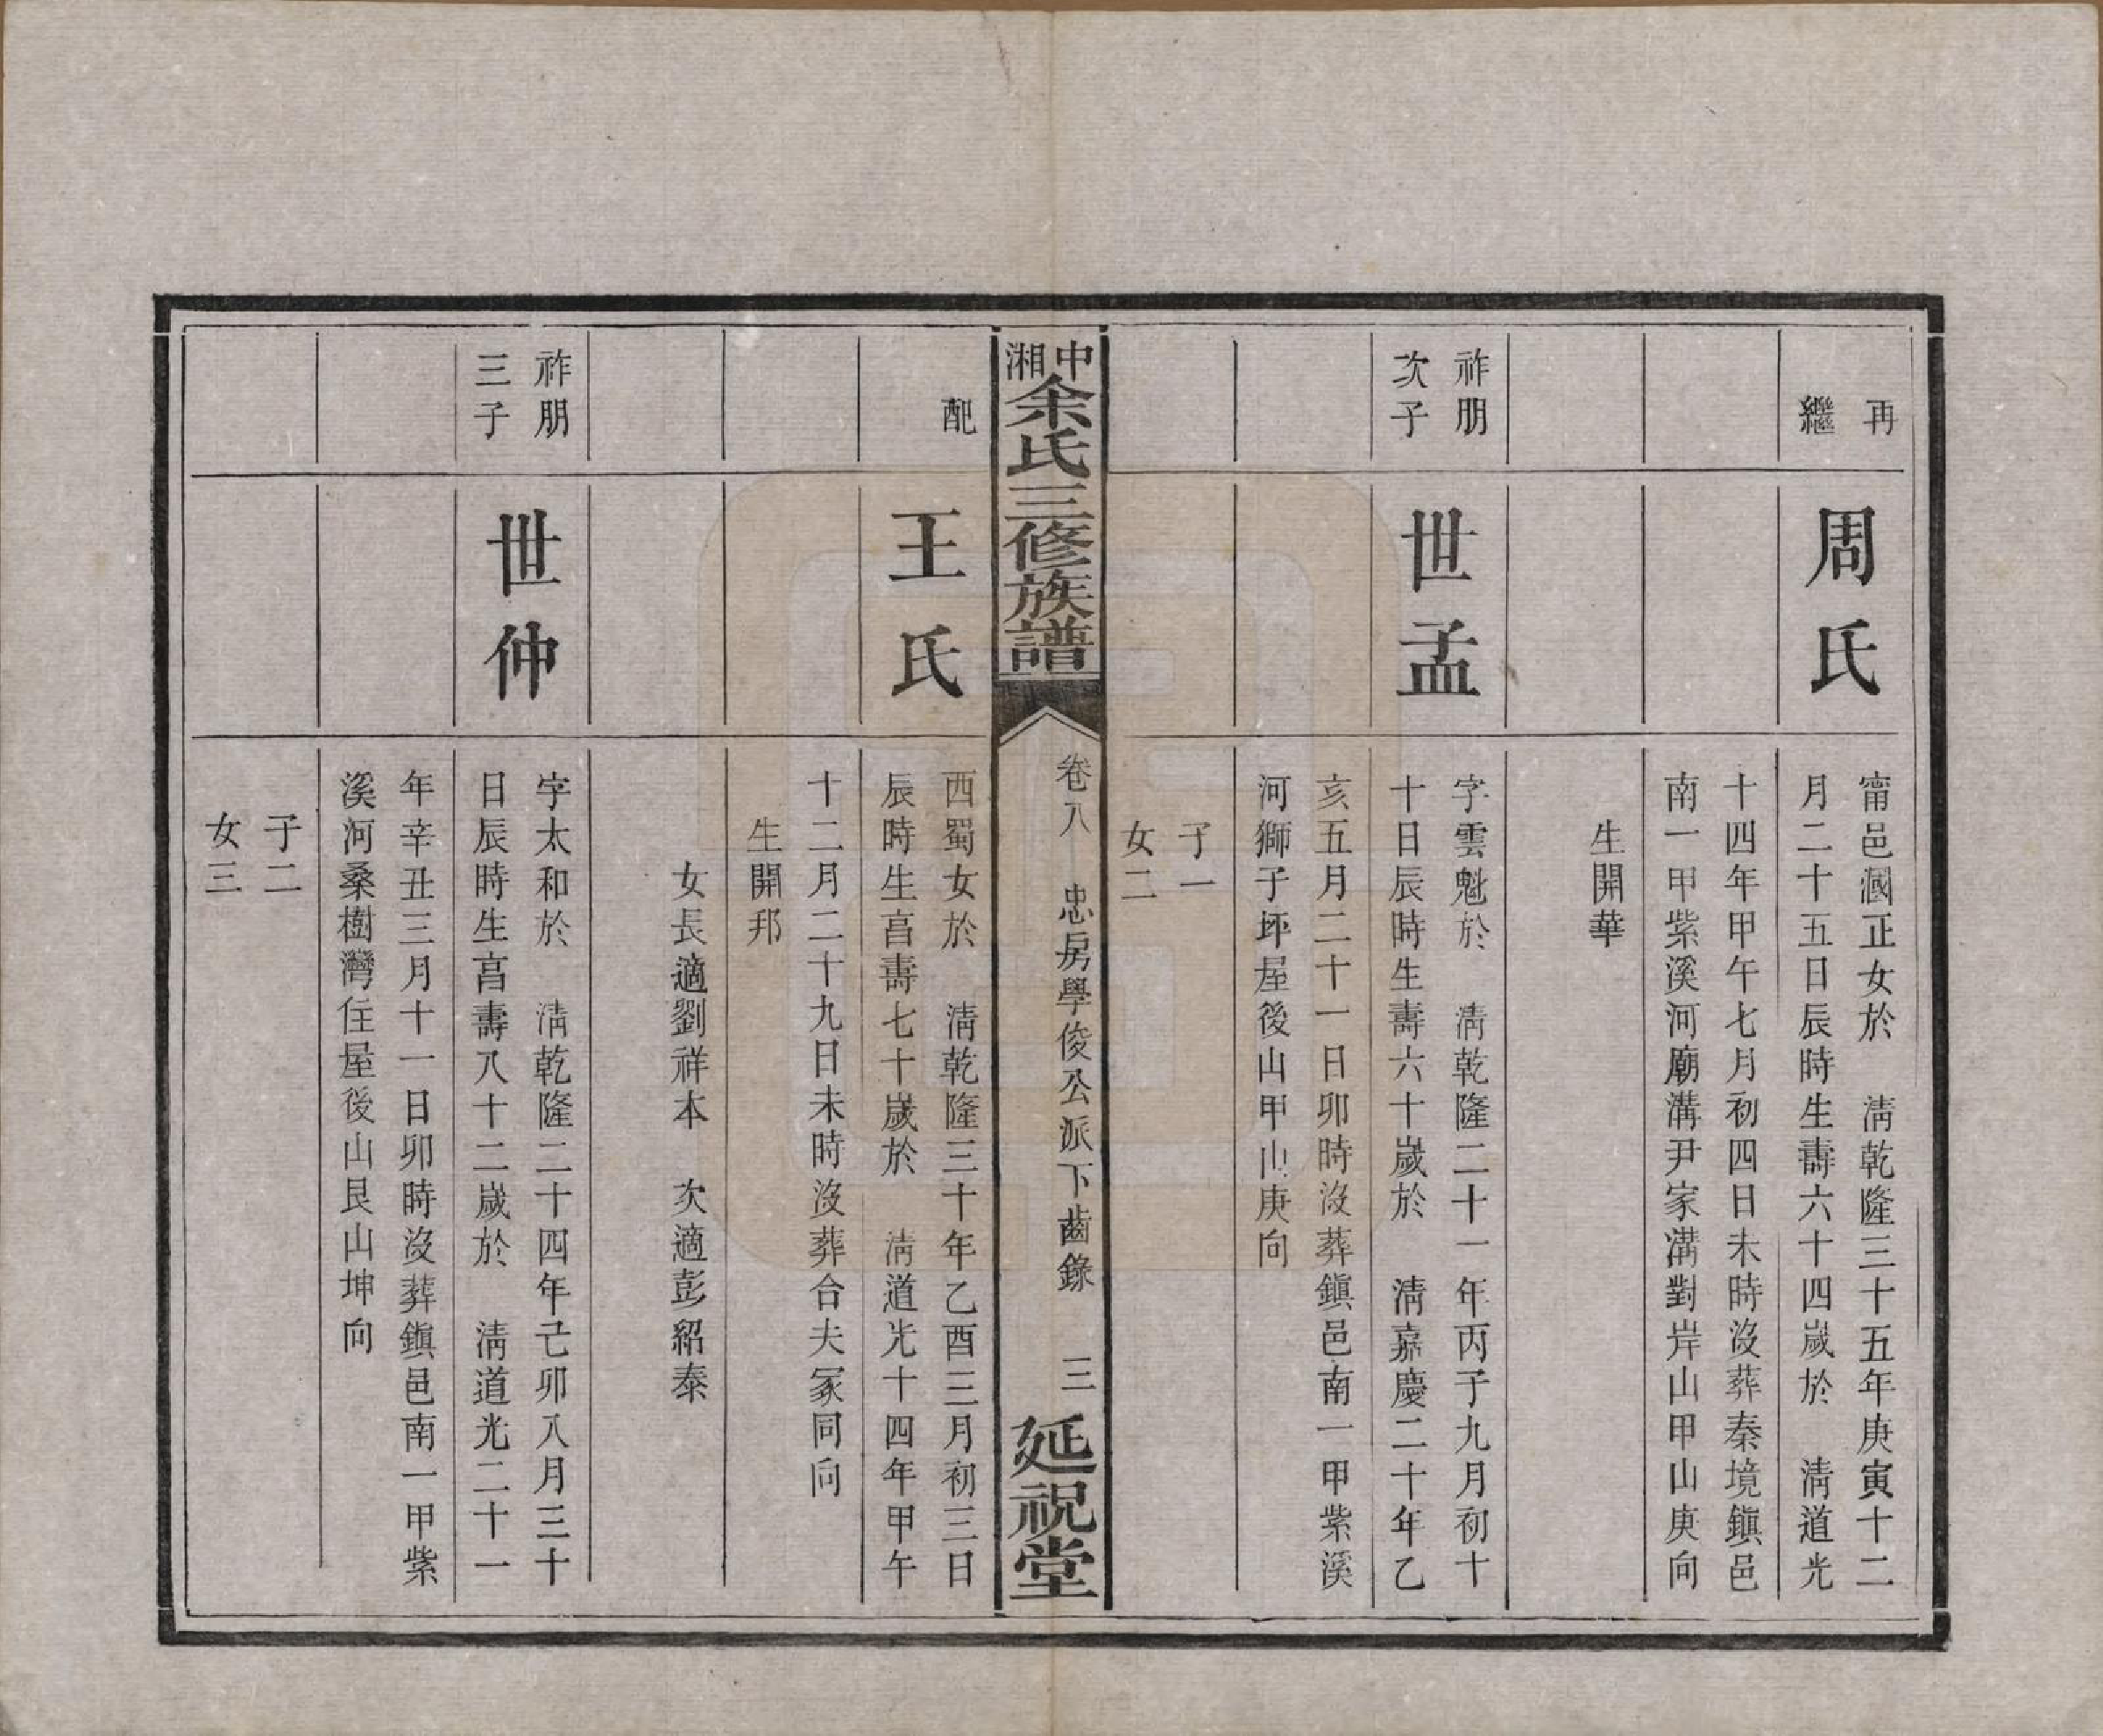 再
繼
周氏
甯邑漍正女於　淸乾隆三十五年庚寅十二
月二十五日辰時生壽六十四嵗於　淸道光
十四年甲午七月初四日未時沒葬秦境鎭邑
南一甲紫溪河廟溝尹家溝對岸山甲山庚向
生開華
祚朋
次子
世孟
字雲魁於　淸乾隆二十一年丙子九月初十
十日辰時生壽六十嵗於　淸嘉慶二十年乙
亥五月二十一日卯時沒葬鎭邑南一甲紫溪
河獅子坪屋後山甲山庚向
子一
女二
中湘余氏三修族譜
卷八　忠房學俊公派下齒錄　三
延祝堂
配
王氏
西蜀女於　淸乾隆三十年乙酉三月初三日
辰時生亯壽七十嵗於　淸道光十四年甲午
十二月二十九日未時沒葬合夫冢同向
生開邦
女長適劉祥本　次適彭紹泰
祚朋
三子
世仲
字太和於　淸乾隆二十四年己卯八月三十
日辰時生亯壽八十二嵗於　淸道光二十一
年辛丑三月十一日卯時沒葬鎭邑南一甲紫
溪河桑樹灣住屋後山艮山坤向
子二
女三